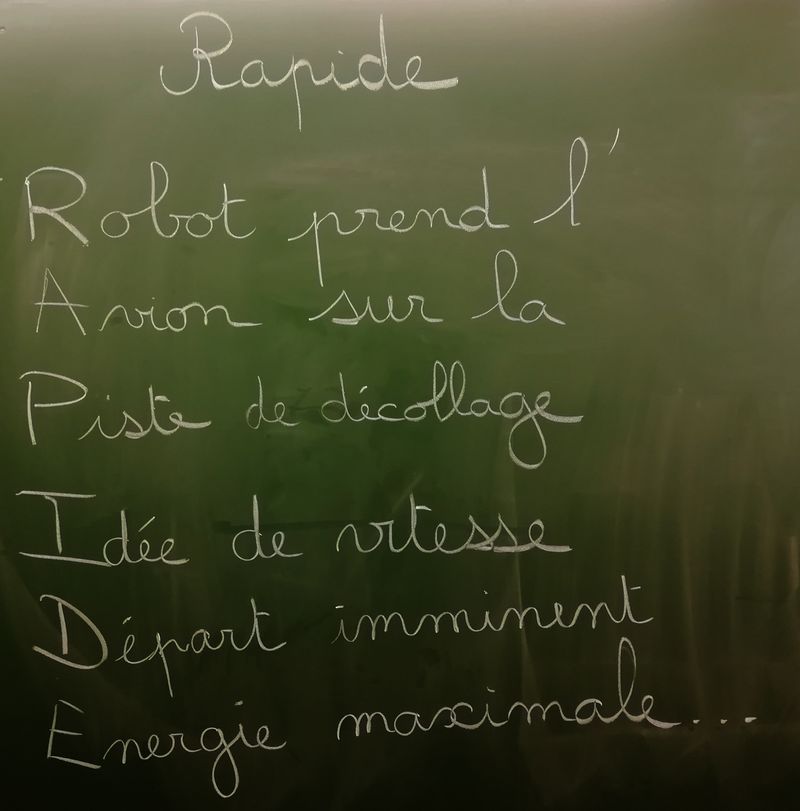 Rapide
Robot prend l'
Avion sur la
Piste de décollage
Idée de vitesse
Départ imminent
Energie maximale...